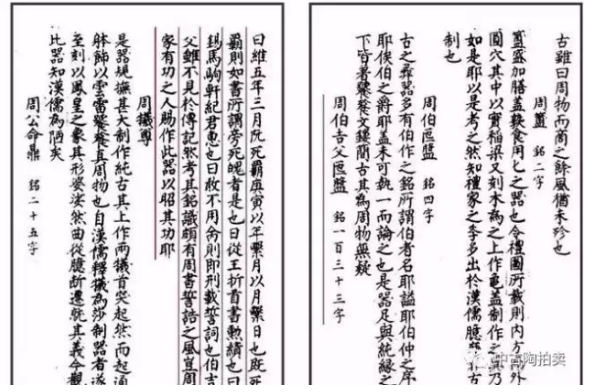 古雖曰周物而商之餘風猶未珍也
周簠 銘二字
簠盛加膳蓋㪺食用匕之器也今禮圖所載則內方而外
圓穴其中以實稻梁又刻木為之上作龜蓋制作之異乃
如是耶以是考之然知禮家之學多出於漢儒臆
制也
周伯匜盤 銘四字
古之彝器多有伯作之銘所謂伯者名耶謚耶伯仲之序
耶侯伯之爵耶蓋未可執一而論之也是器足與純緣之
下皆著饕餮文鏤簡古其為周物無疑
周伯吉父匜盤 銘一百三十三字
曰維五年三月既死霸庚寅以年繫月以月繫日也既死
霸則如書所謂旁死魄者是也曰從王折首書勳績也曰
錫馬駒軒紀君惠也曰敢不用命則即刑載誓詞也伯吉
父雖不見於傳記然考其銘識頗有周書誓誥之風宣周
家有功之人賜作此器以昭其功耶
周犧尊
是器規撫甚大制作純古其上作兩犧首突起然而起通
體飾以雲雷饕餮真周物也自漢儒釋犧為莎制器者遂
至刻以鳳皇之象其形婆娑然曲從臆斷遷就其義今觀
比器知漢儒為陋矣
周公命鼎 銘二十五字
中古陶拍卖